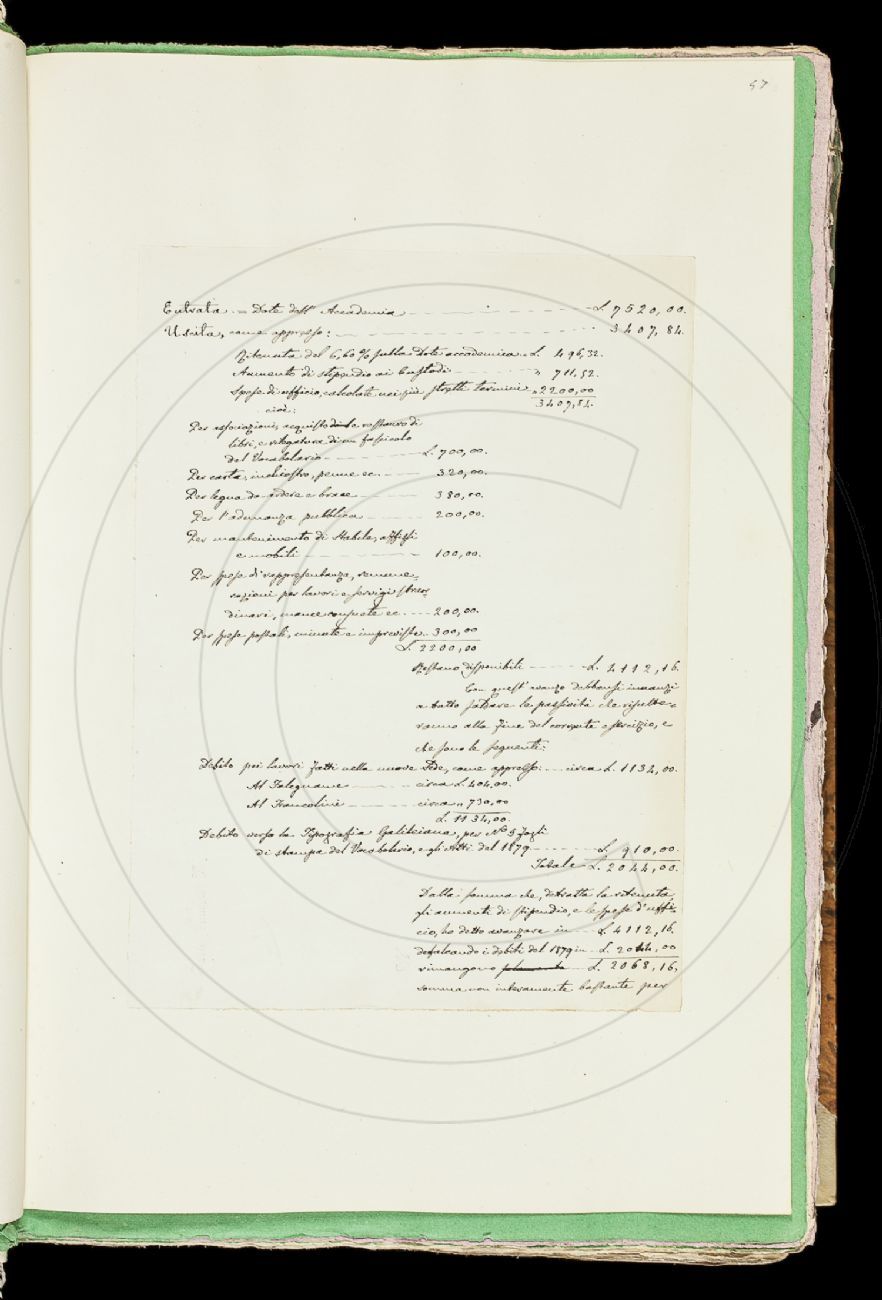 57
Entrata. = Dote dell' Accademia £. 7520,00.
Uscita, come appresso: " 3407,84.
Ritenuta del 6,60% sulla Dote accademica £. 496,32.
Aumento di stipendio ai Custodi " 711,52.
Spese di ufficio, calcolate nei più stretti termini " 2200,00
3407,84.
cioè:
Per associazioni, acquisto e restauro di
libri, e rilegatura di un fascicolo
del Vocabolario £. 700,00.
Per carta, inchiostro, penne ec. 320,00.
Per legna da ardere e brace 380,00.
Per l'adunanza pubblica 200,00.
Per mantenimento di Stabile, affissi
e mobili 100,00.
Per spese di rappresentanza, remune-
razioni per lavori e servigi straor-
dinari, mance consuete ec. 200,00.
Per spese postali, minute e impreviste. 300,00
£. 2200,00
Restano disponibili £. 4112,16
Con quest' avanzo debbonsi innanzi
a tutto saldare le passività che risulte-
ranno alla fine del corrente esercizio, e
che sono le seguenti:
Debito pei lavori fatti nella nuova Sede, come appresso: circa £. 1134,00.
Al Falegname circa £. 404,00.
Al Francolini circa " 730,00
£. 1134,00.
Debito verso la Tipografia Galileiana, per N.o 5 fogli
di stampa del Vocabolario, e gli Atti del 1879 £. 910,00.
Totale £. 2044,00.
Dalla somma che, detratta la ritenuta,
gli aumenti di stipendio, e le spese d'uffi-
cio, ho detto avanzare in £. 4112,16.
defalcando i debiti del 1879 in £. 2044,00
rimangono solamente £. 2068,16,
somma non interamente bastante per